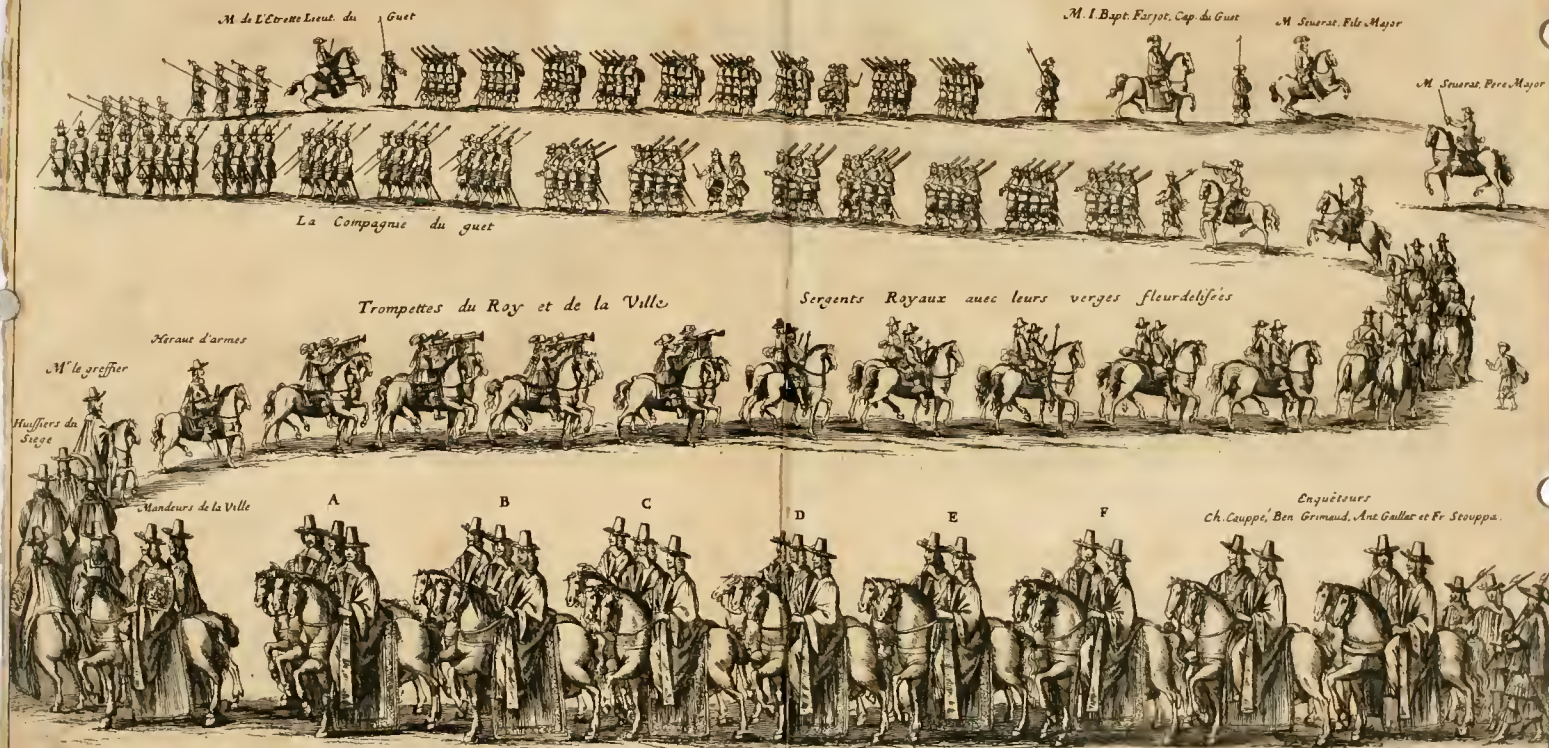 M. de L'Etrette Lieut. du Guet
M. I. Bapt. Farjot, Cap. du Guet
M Seuerat, Fils Major
M Seuerat, Pere Major
La Compagnie du guet
Trompettes du Roy et de la Ville
Sergents Royaux auec leurs verges fleurdelisées
Heraut d'armes
Mr le greffier
Huissiers du
Siege
Mandeurs de la Ville
A
B
C
D
E
F
Enquêteurs
Ch. Cauppé, Ben Grimaud, Ant Gaillat et Fr Stouppa.